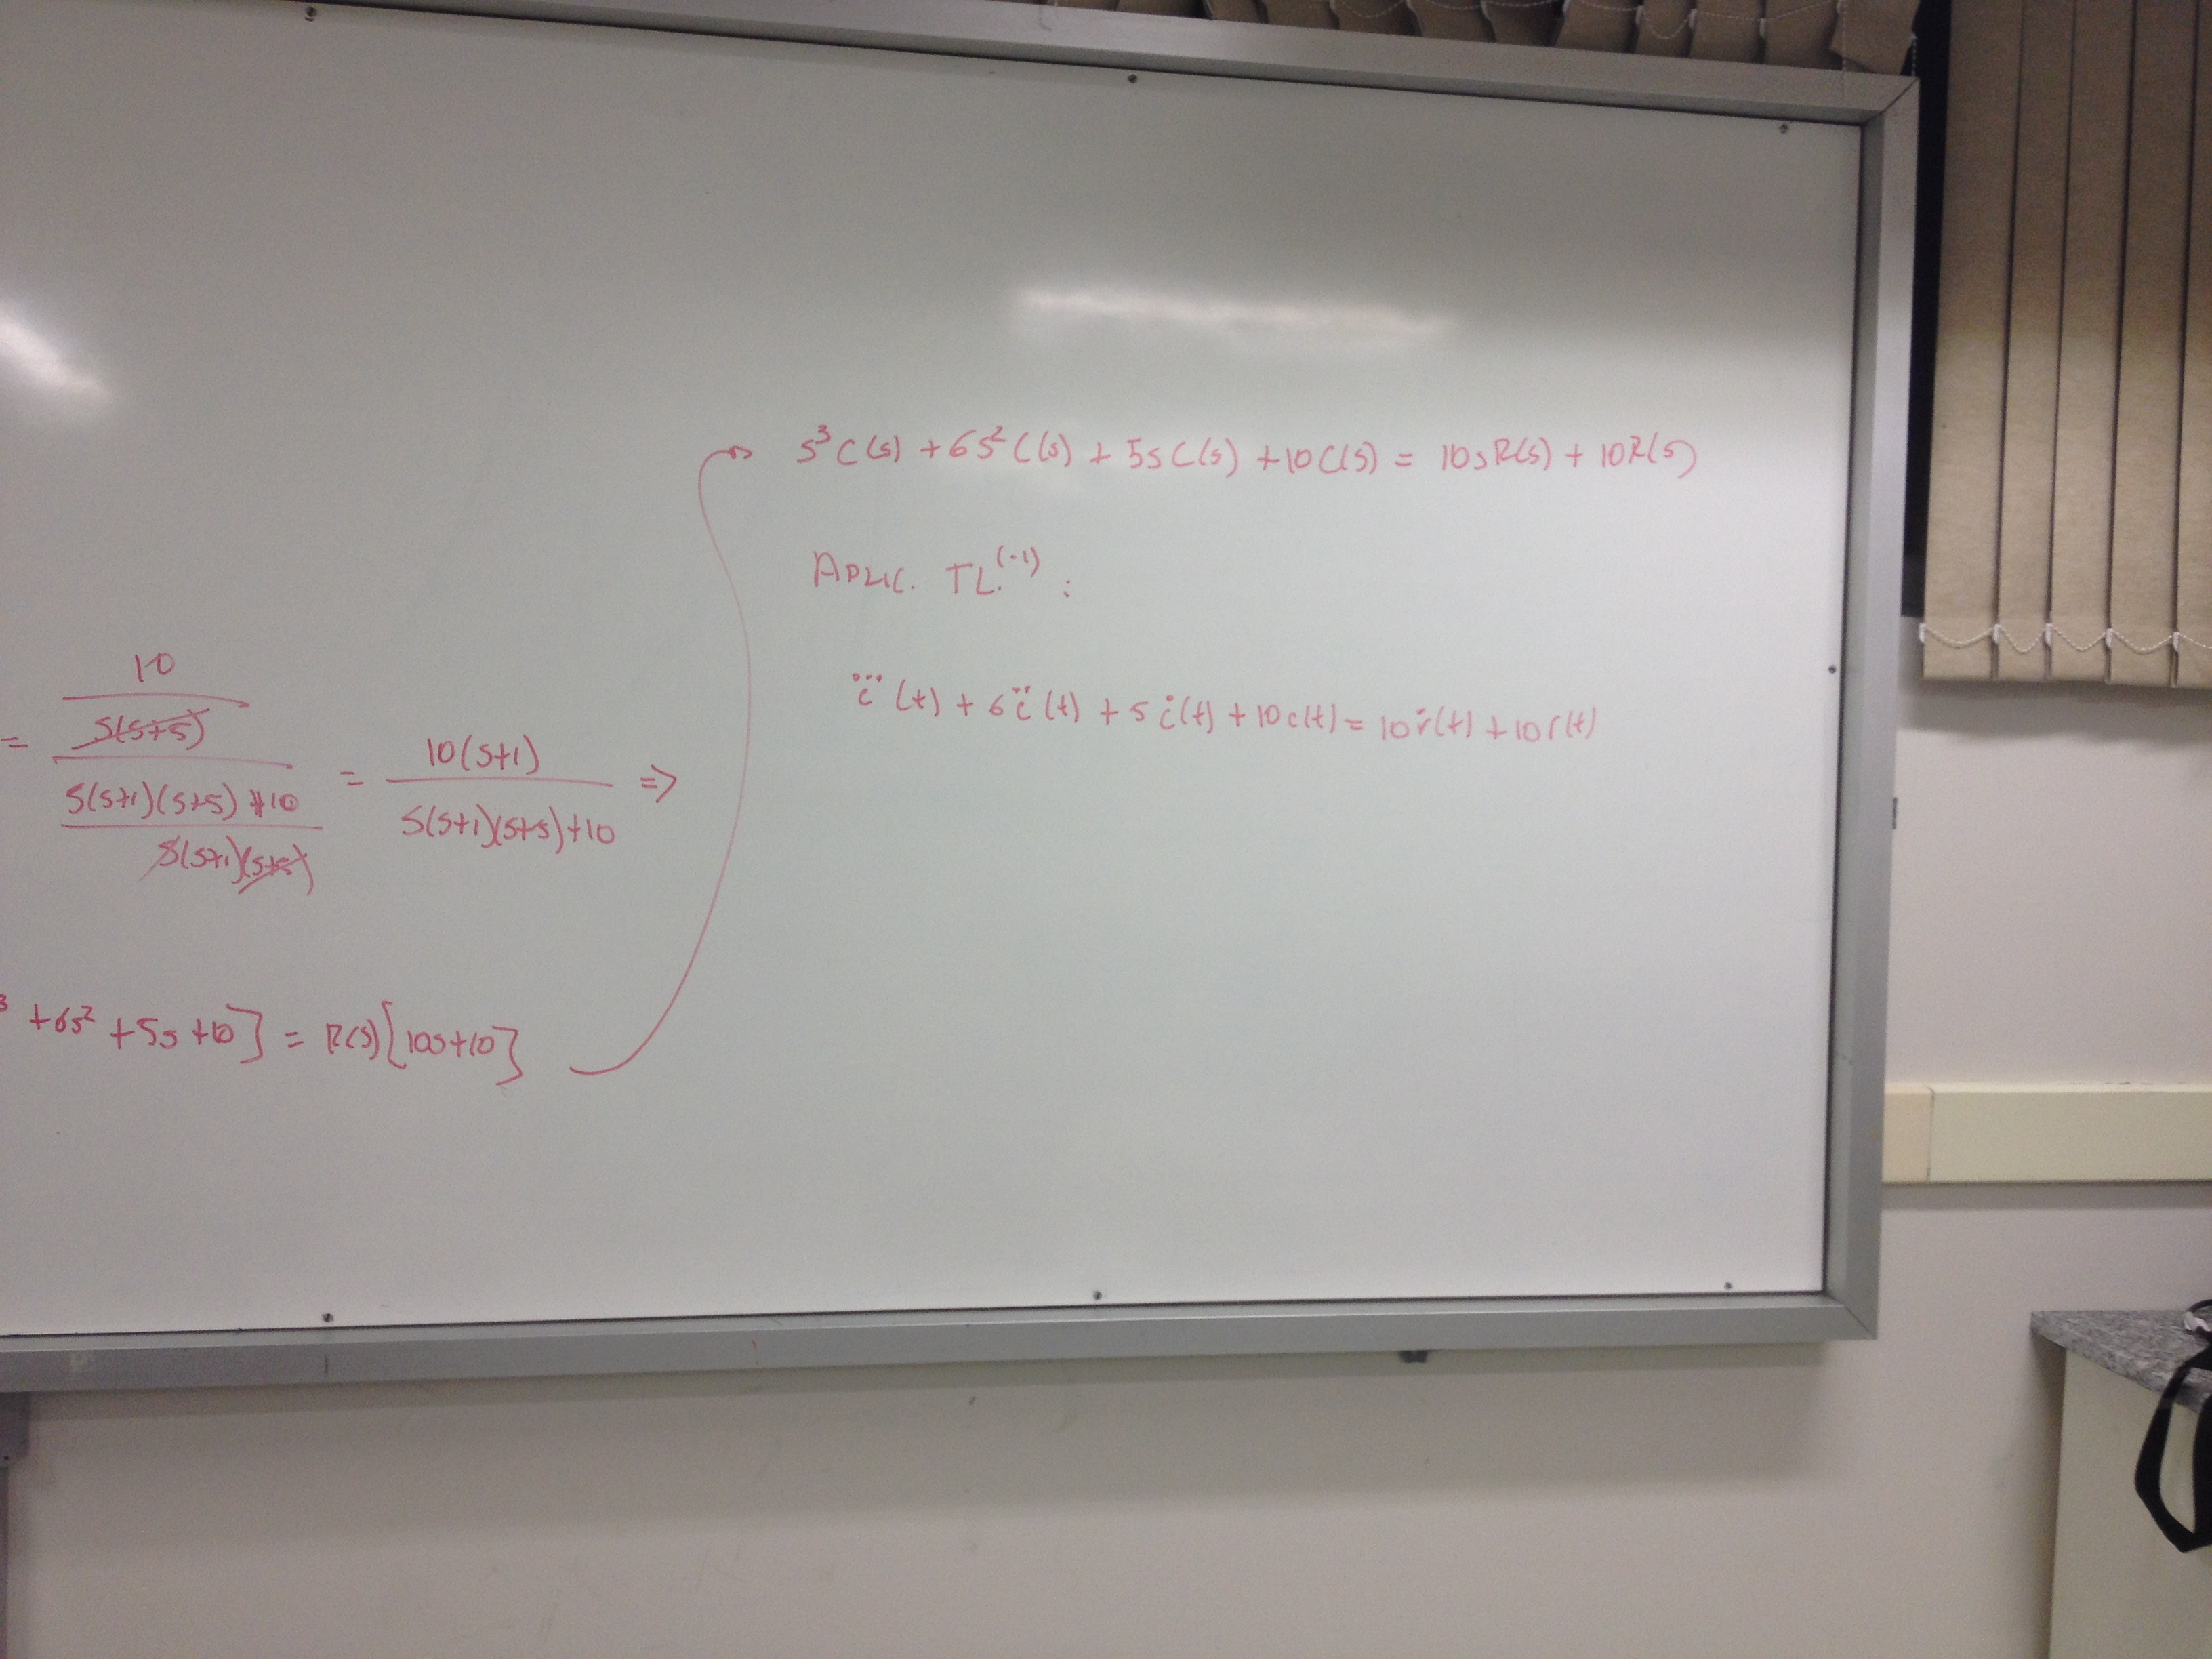 = 10 / s(s+5) / s(s+1)(s+5) + 10 / s(s+1)(s+5) = 10(s+1) / s(s+1)(s+5)+10 =>
³ +6s² +5s +10] = R(s)[10s+10]
s³C(s) + 6s²C(s) + 5sC(s) + 10C(s) = 10sR(s) + 10R(s)
APLIC. TL.⁽⁻¹⁾ :
c⃛(t) + 6c̈(t) + 5ċ(t) + 10c(t) = 10ṙ(t) + 10r(t)